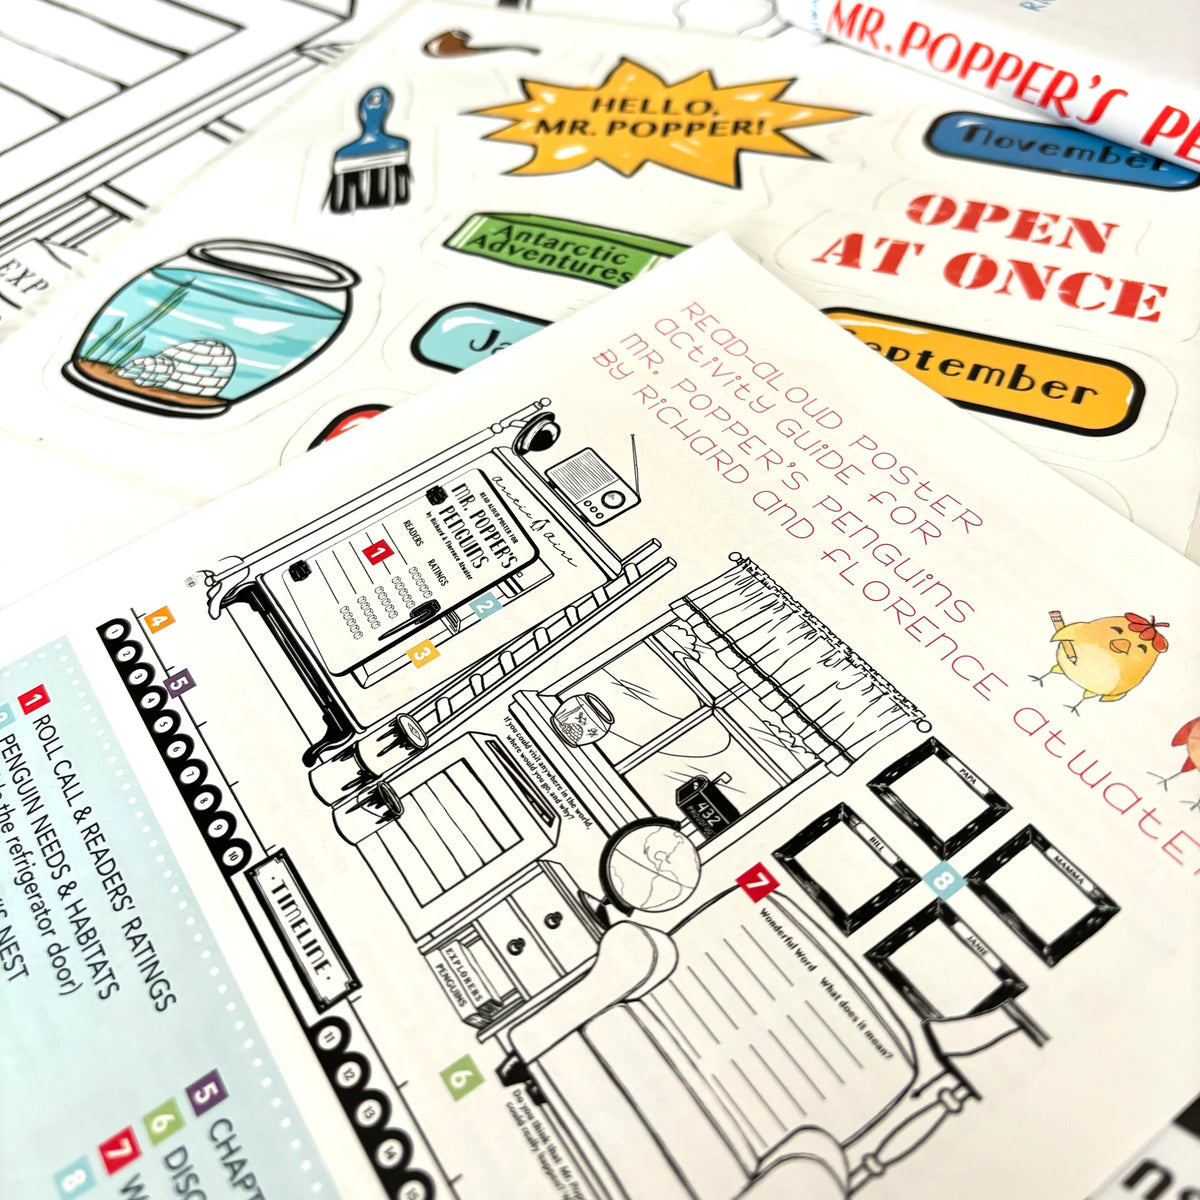 MR. POPPER'S PE
HELLO,
MR. POPPER!
November
OPEN
AT ONCE
Antarctic
Adventures
Ja
September
EXP
READ-ALOUD POSTER
ACTIVITY GUIDE FOR
MR. POPPER'S PENGUINS
BY RICHARD AND FLORENCE ATWATE
arctic aire
READ ALOUD POSTER FOR
MR. POPPER'S
PENGUINS
by Richard & Florence Atwater
READERS RATINGS
1
2
3
4
5
1
2
3
4
5
6
7
8
9
10
TIMELINE
11
12
13
14
15
If you could visit anywhere in the world,
where would you go, and why?
432
PROUDFOOT
PAPA
BILL
MAMMA
JANIE
8
7
Wonderful Word What does it mean?
EXPLORERS
PENGUINS
6
Do you think that Mr. Pop
could really happen?
1 ROLL CALL & READERS' RATINGS
2 PENGUIN NEEDS & HABITATS
the refrigerator door)
'S NEST
5 CHAPT
6 DISC
7 W
8